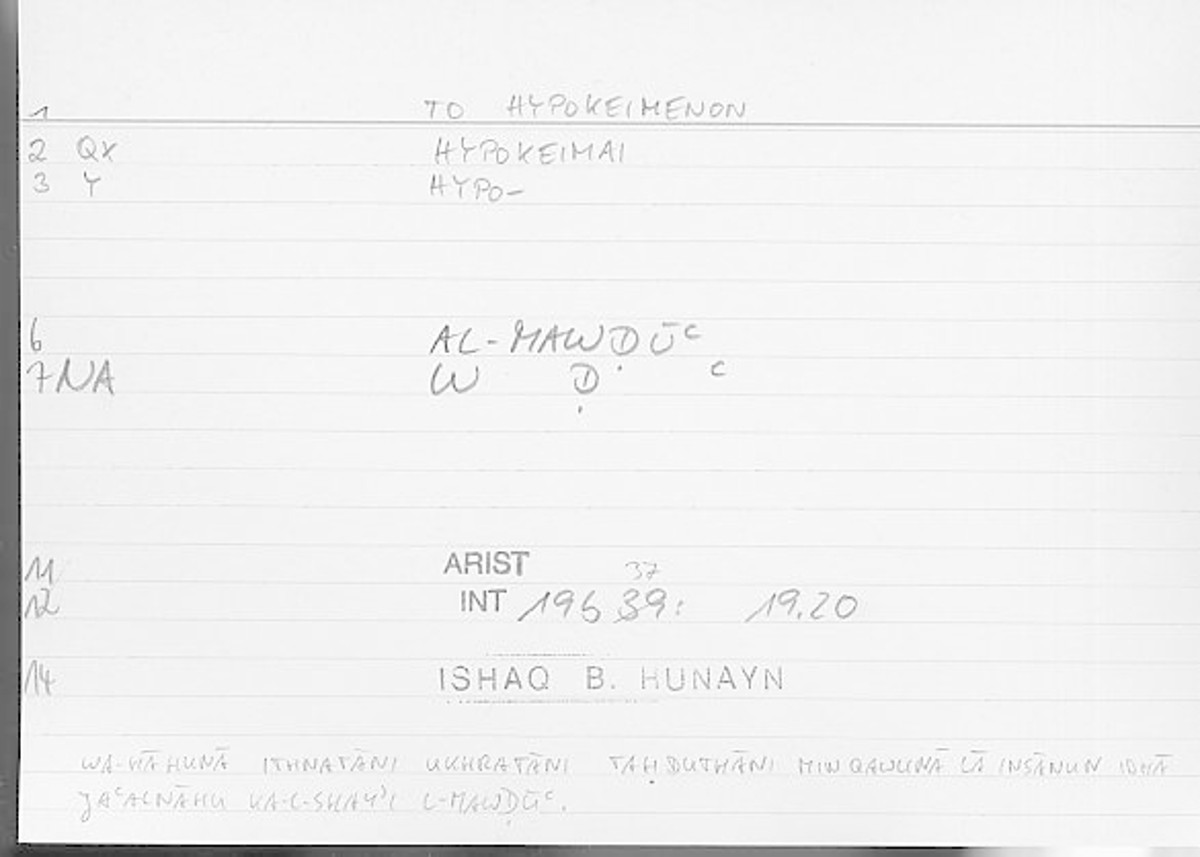 1 TO HYPOKEIMENON
2 QX HYPOKEIMAI
3 Y HYPO-
6 AL-MAWḌŪC
7 NA W Ḍ C
11 ARIST 37
12 INT 196 39: 19.20
14 ISHAQ B. HUNAYN
WA-HĀHUNĀ ITHNATĀNI UKHRATĀNI TAḤDUTHĀNI MIN QAWLINĀ LĀ INSĀNUN IDHĀ
JAᶜALNĀHU KA-L-SHAYʾI L-MAWḌŪᶜ.